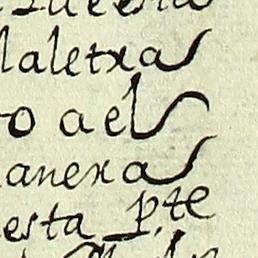 laletra
o a él
anera
esta p.te